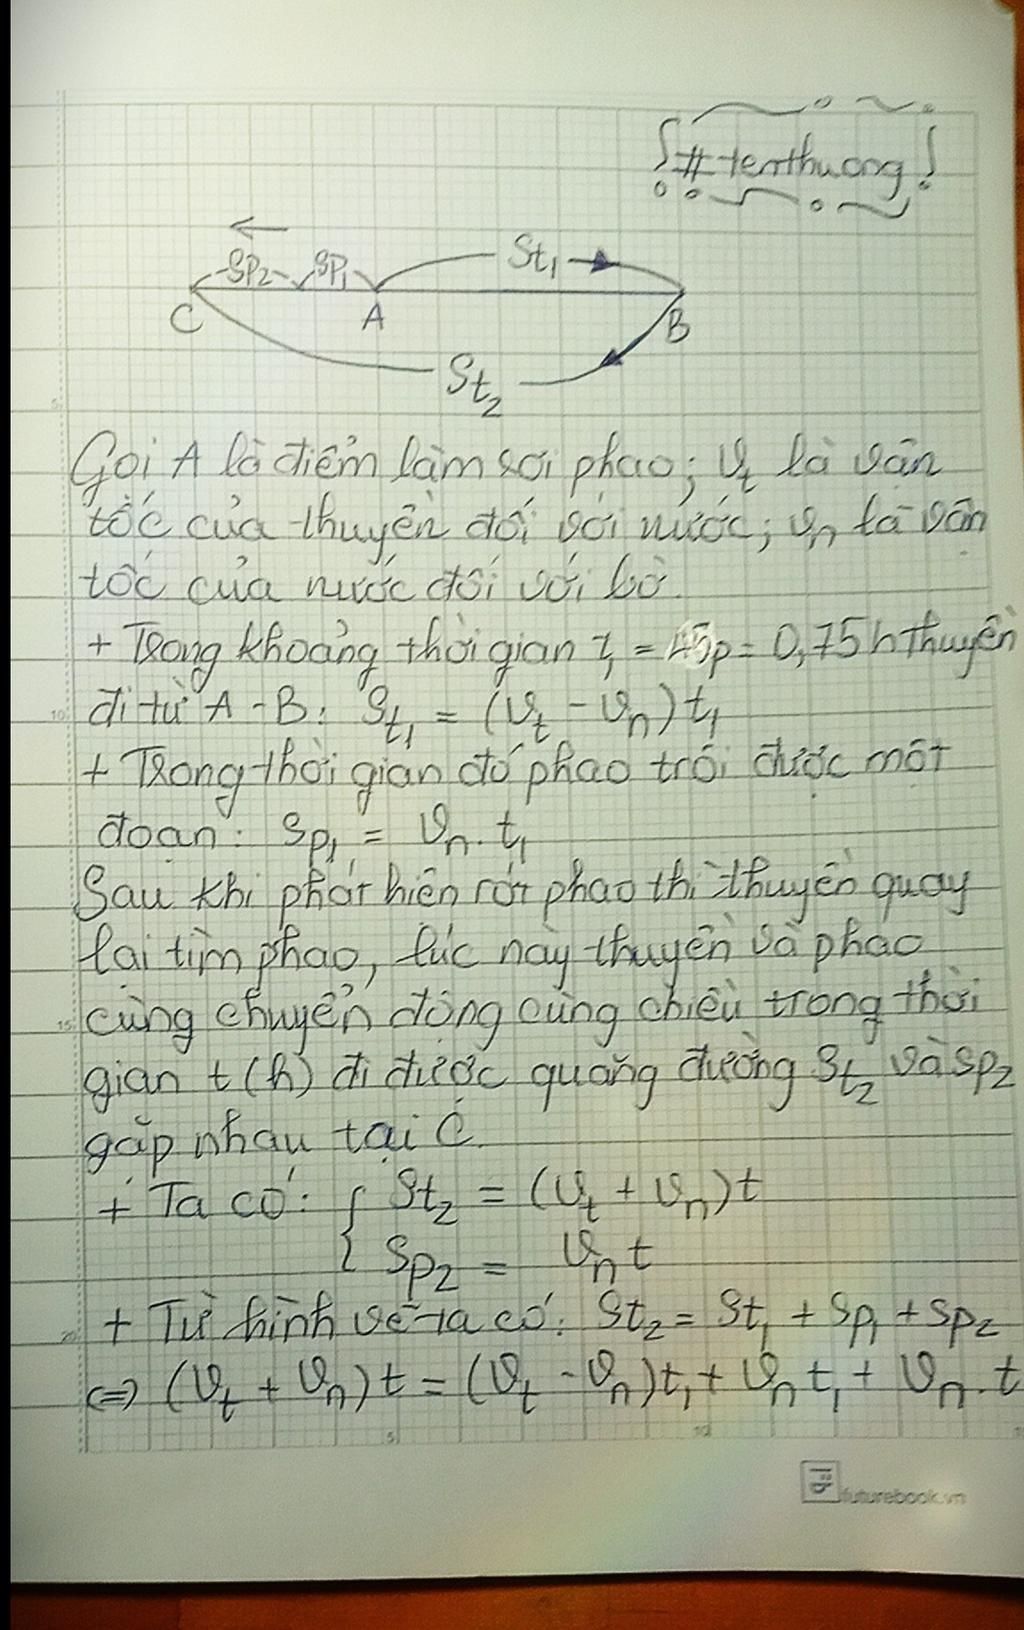 #temthuong
St₁
Sp₂ Sp₁
C A B
St₂
Gọi A là điểm làm rơi phao; vₜ là vận
tốc của thuyền đối với nước; vₙ là vận
tốc của nước đối với bờ.
+ Trong khoảng thời gian t₁ = 45p = 0,75h thuyền
đi từ A - B: St₁ = (vₜ - vₙ)t₁
+ Trong thời gian đó phao trôi được một
đoạn: Sp₁ = vₙ.t₁
Sau khi phát hiện rớt phao thì thuyền quay
lại tìm phao, lúc này thuyền và phao
cùng chuyển động cùng chiều trong thời
gian t(h) đi được quãng đường St₂ và Sp₂
gặp nhau tại C.
+ Ta có: { St₂ = (vₜ + vₙ)t
Sp₂ = vₙt
+ Từ hình vẽ ta có: St₂ = St₁ + Sp₁ + Sp₂
<=> (vₜ + vₙ)t = (vₜ - vₙ)t₁ + vₙt₁ + vₙ.t
5
10
15
20
5
10
futurebook.vn